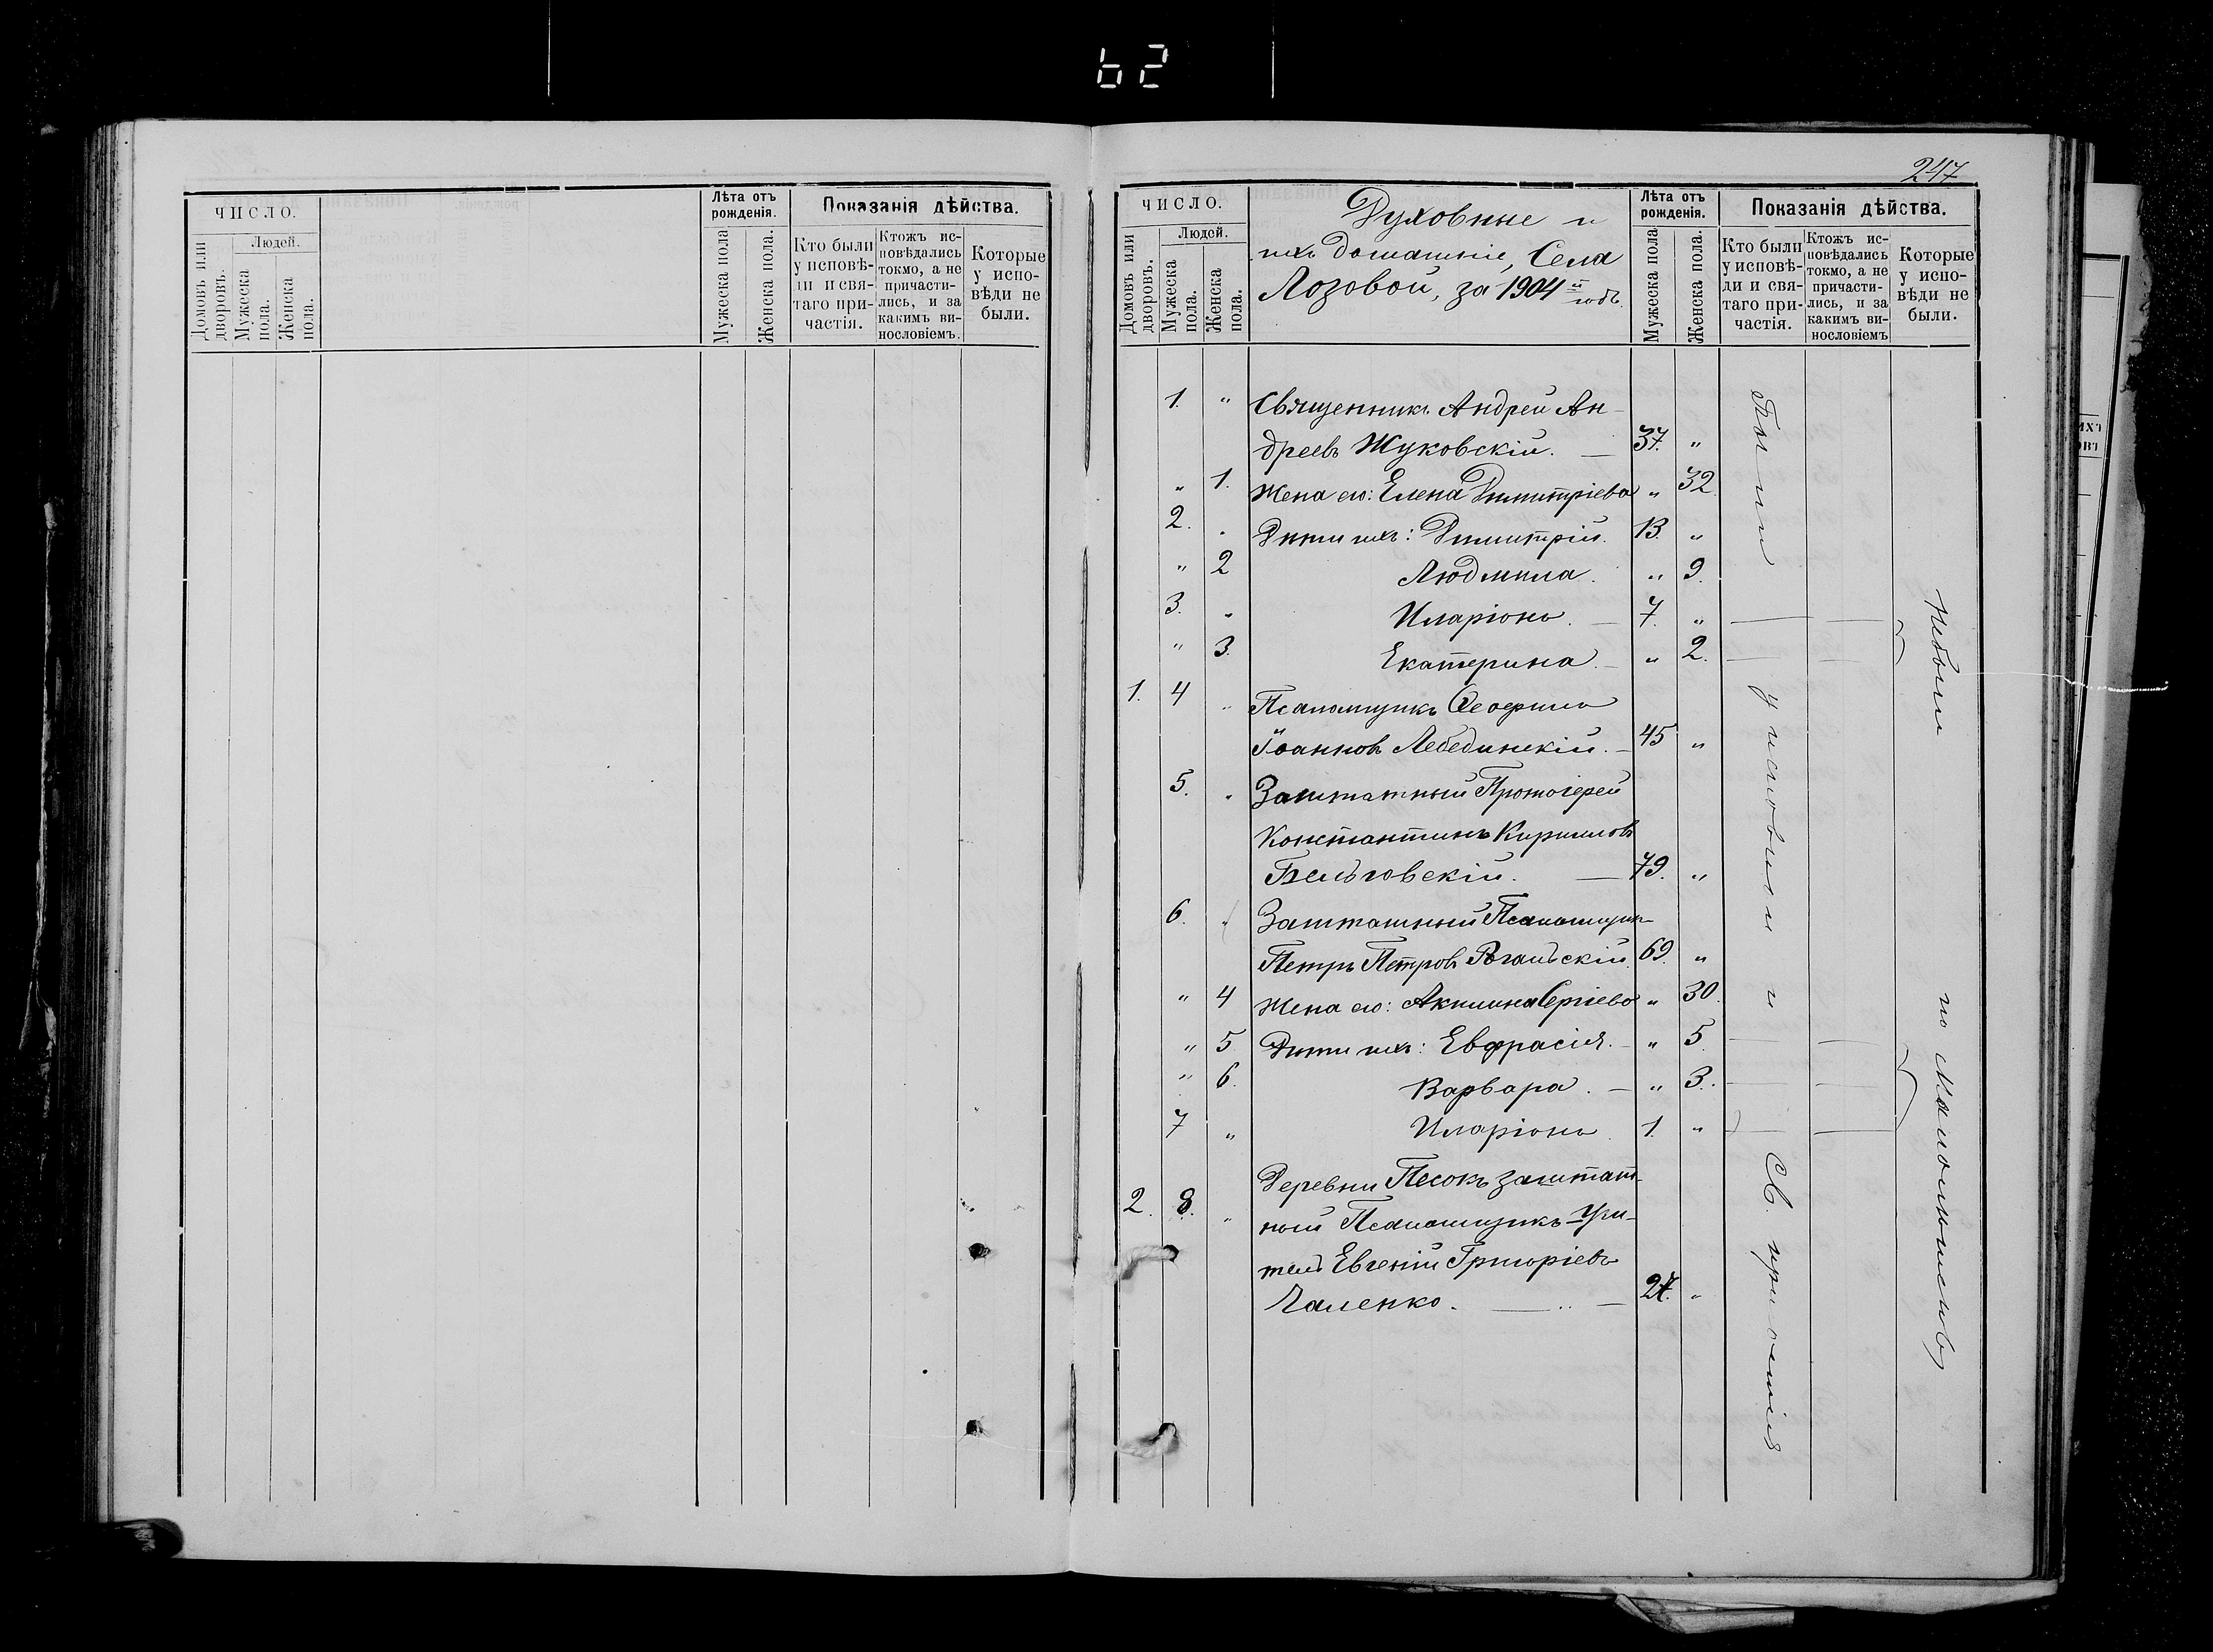 62
ЧИСЛО.
Людей.
Домовъ или дворовъ.
Мужеска пола.
Женска пола.
Лѣта отъ рожденія.
Мужеска пола
Женска пола.
Показанія дѣйства.
Кто были у исповѣди и святаго причастія.
Ктожъ исповѣдались токмо, а не причастились, и за какимъ винословіемъ.
Которые у исповѣди не были.
247
ЧИСЛО.
Людей.
Домовъ или дворовъ.
Мужеска пола.
Женска пола.
Духовные и
ихъ домашніе, Села
Лозовой, за 1904 й годъ.
Лѣта отъ рожденія.
Мужеска пола
Женска пола.
Показанія дѣйства.
Кто были у исповѣди и святаго причастія.
Ктожъ исповѣдались токмо, а не причастились, и за какимъ винословіемъ
Которые у исповѣди не были.
1. " Священникъ Андрей Ан-
дреевъ Жуковскій. — 37. "
" 1. Жена его: Елена Димитріева " 32.
2. " Дѣти ихъ: Димитрій. 13. "
" 2 Людмила. " 9.
3. " Иларіонъ. — 7. "
" 3. Екатерина. — " 2.
1. 4 " Псаломщикъ
Іоанновъ Лебединскій. — 45 "
5. " Заштатный Протоіерей
Константинъ Кирилловъ
— 79. "
6. " Заштатный Псаломщикъ
Петръ Петровъ 69. "
" 4 Жена его: Акилина Сергіева " 30.
" 5 Дѣти ихъ: Евфрасія. — " 5.
" 6. Варвара. — " 3.
7 " Иларіонъ 1. "
Деревни Песокъ заштат-
2. 8. " ный Псаломщикъ-Учи-
тель Евгеній Григоріевъ
Галенко. — 27. "
Были у исповѣди и Св. причастія
Небыли по малолѣтству